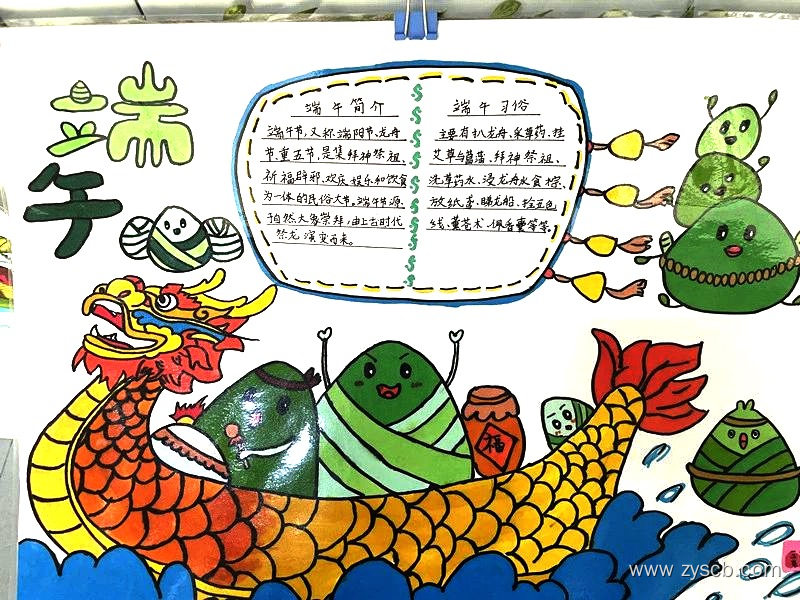 端午
端午简介
端午节，又称端阳节、龙舟
节、重五节，是集拜神祭祖、
祈福辟邪、欢庆娱乐和饮食
为一体的民俗大节。端午节源
自然天象崇拜，由上古时代
祭龙演变而来。
端午习俗
主要有扒龙舟、采草药、挂
艾草与菖蒲、拜神祭祖、
洗草药水、浸龙舟水食粽、
放纸鸢、睇龙船、拴五色
线、薰苍术、佩香囊等等。
福
www.zyscb.com